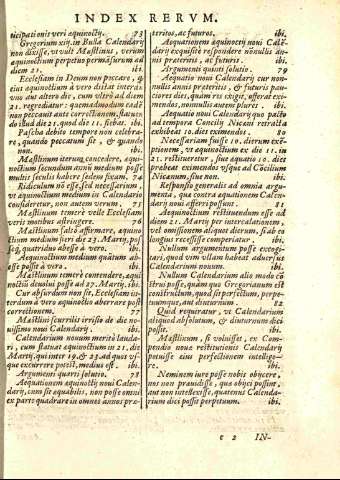 INDEX RERVM.
ticipationi veri æquinoctij. 73
Gregorium xiij. in Bulla Calendarij
non dixisse, vt vult Mæstlinus, verum
æquinoctium perpetuo permāsurum ad
diem 21. ibi.
Ecclesiam in Deum non peccare, q
eius æquinoctium à vero distat interdū
vno die aut altero die, cum
21. regrediatur: quemadmodum eadē
non peccauit ante correctionem,
do illud die 21. quod die 11. fiebat. ibi.
Pascha debito tempore non celebra-
re, quando peccatum sit, & quando
non. ibi.
Mæstlinum iterum concedere, æqui-
noctium secundum annū medium posse
multis seculis habere sedem fixam. 74
Ridiculum nō esse, sed necessarium,
vt æquinoctium medium in Calendario
custodiretur, non autem verum. 75
Mæstlinum temerè velle Ecclesiam
veris motibus astringere. 76
Mæstlinum falsò affirmare, æquino
ctium medium fieri die 23. Martij, post
quatriduo abesse à vero. ibi.
Aequinoctium medium quātum ab-
esse possit à vero. ibi.
Mæstlinum temerè contendere, æqui
noctiū deuolui posse ad 27. Martij. ibi.
Cur absurdum non sit, Ecclesiam in-
terdum à vero æquinoctio aberrare post
correctionem. 77
Mæstlini scurrilis irrisio de die no-
uissimo noui Calendarij. ibi.
Calendarium nouum meritò lauda-
ri, cum statuat æquinoctium in 21. die
Martij, qui inter 19. & 23. ad quos vs-
que excurrere potest, medius est. ibi.
Argumenti quarti solutio. 78
Aequationem æquinoctij noui Calen-
darij, cum sit æquabilis, non posse omni
ex parte quadrare in omnes annos præ-
teritos, ac futuros. ibi.
Aequationem æquinoctij noui Calē-
darij exquisitè respondere nōnullis an-
nis præteritis, ac futuris. ibi.
Argumenti quinti solutio. 79
Aequatio noui Calendarij cur non-
nullis annis præteritis, & futuris pau-
ciores dies, quàm res exigit, afferat exi-
mendos, nonnullis autem plures. ibi.
Aequatio noui Calendarij quo pacto
ad tempora Concilij Nicæni retracta
exhibeat 10. dies eximendos. 80
Necessariam fuisse 10. dierum exē-
ptionem, vt æquinoctium ex die 11. in
21. restitueretur, siue æquatio 10. dies
præbeat eximendos vsque ad Cōcilium
Nicænum, siue non. ibi.
Responsio generalis ad omnia argu-
menta, quæ contra æquationem Calen-
darij noui afferri possunt. 81
Aequinoctium restituendum esse ad
diem 21. Martij per intercalationem,
vel omissionem aliquot dierum, si ab eo
longius recessisse comperiatur. ibi.
Nullum argumentum posse excogi-
tari, quod vim vllam habeat aduersus
Calendarium nouum. ibi.
Nullum Calendarium alio modo cō-
strui posse, quàm quo Gregorianum est
constructum, quod sit perfectum, perpe-
tuumque, aut diuturnum. 82
Quid requiratur, vt Calendarium
aliquod absolutum, & diuturnum dici
possit. ibi.
Mæstlinum, si voluisset, ex Com-
pendio noua restitutionis Calendarij
potuisse eius perfectionem intellige-
re. ibi.
Neminem iure posse nobis obijcere,
nos non præuidisse, quæ obijci possint,
aut non intellexisse, quatenus Calenda-
rium dici possit perpetuum. ibi.
c 2 IN-